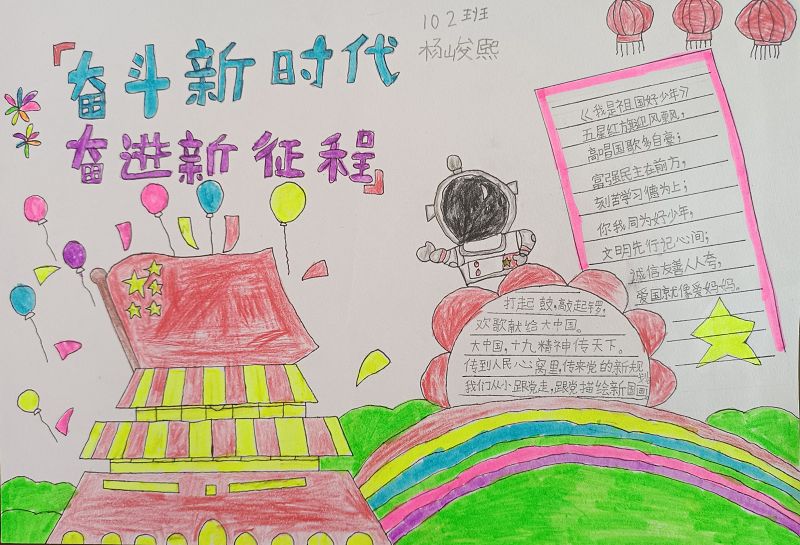 102班
杨峻熙
「奋斗新时代
奋进新征程」
《我是祖国好少年》
五星红旗迎风飘，
高唱国歌多自豪；
富强民主在前方，
刻苦学习德为上；
你我同为好少年，
文明先行记心间；
诚信友善人人夸，
爱国就像爱妈妈。
打起鼓，敲起锣，
欢歌献给大中国。
大中国，十九精神传天下。
传到人民心窝里，传来党的新规划
我们从小跟党走，跟党描绘新国画